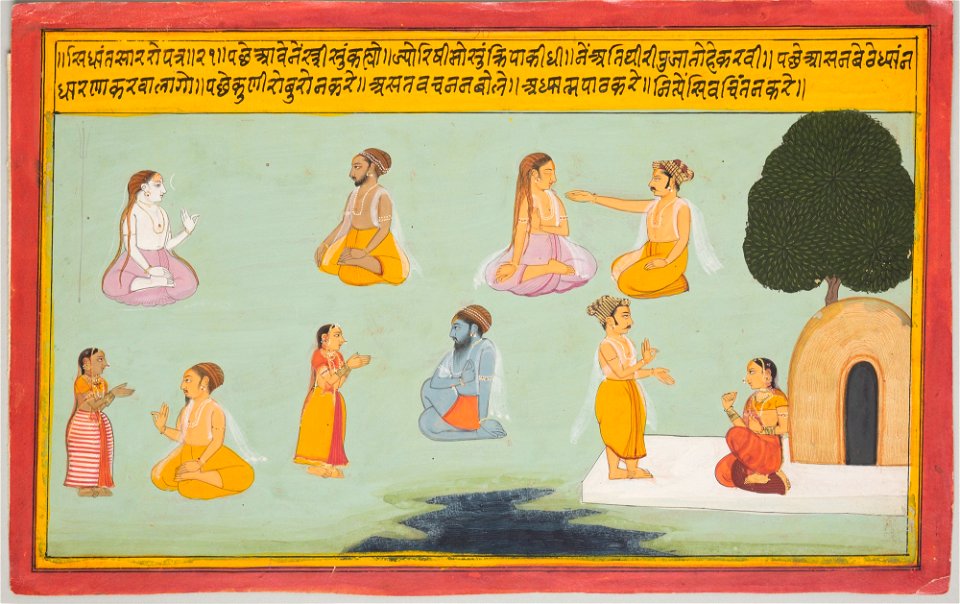 ॥ सिधंतसार रो पत्र ॥ २१ ॥ पछे आवे ने स्त्री सुं कह्यो ॥ ज्यो रिषी सो सुं क्रिपा कीधी ॥ ने अतिथी री पुजा तो दे करवी ॥ पछे आसन बेवे ध्यांन
ध्यारणा करवा लागो ॥ पछे कुणी रो बुरो न करे ॥ असत वचन न बोले ॥ अध्यात्म पाठ करे ॥ नित्ये सिव चिंतन करे ॥